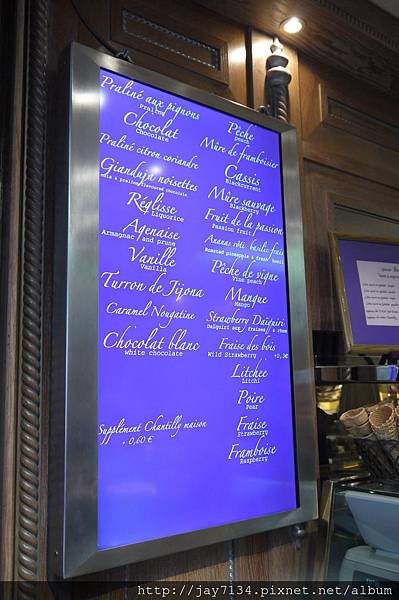 Praliné aux pignons
Praline
Chocolat
Chocolate
Praliné citron coriandre
Gianduja noisettes
Réglisse
Liquorice
Agenaise
Armagnac and prune
Vanille
Vanilla
Turron de Jijona
Caramel Nougatine
Chocolat blanc
white chocolate
Supplément Chantilly maison
. 0,60 €
Pêche
peach
Mûre de framboisier
Cassis
Blackcurrant
Mûre sauvage
Blackberry
Fruit de la passion
Passion fruit
Ananas rôti basilic frais
Roasted pineapple & fresh basil
Pêche de vigne
Vine peach
Mangue
Mango
Strawberry Daïquiri
Daïquiri aux fraises & rhum
Fraise des bois
Wild Strawberry . +0,3€
Litchee
Litchi
Poire
Pear
Fraise
Strawberry
Framboise
Raspberry
http://jay7134.pixnet.net/album